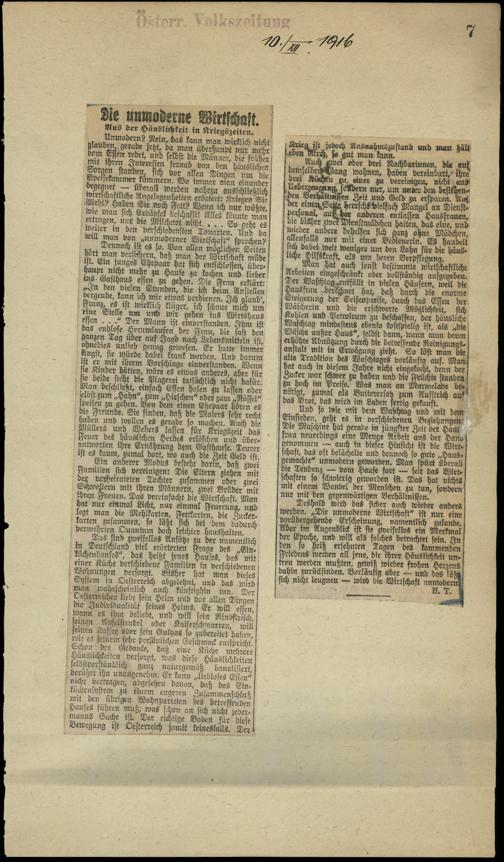 Österr. Volkszeitung
7
10./XII. 1916
Die unmoderne Wirtschaft.
Aus der Häuslichkeit in Kriegszeiten.
Unmodern? Nein, das kann man wirklich nicht
glauben, gerade jetzt, da man überhaupt nur mehr
vom Essen redet, und selbst die Männer, die früher
mit ihren Interessen fernab von den häuslichen
Sorgen standen, sich vor allen Dingen um die
Speisekammer kümmern. Wo immer man einander
begegnet — überall werden nahezu ausschließlich
wirtschaftliche Angelegenheiten erörtert: Kriegen Sie
Mehl? Haben Sie noch Fett? Wenn ich nur wüßte,
wie man sich Erdäpfel beschafft! Alles könnte man
ertragen, nur die Milchnot nicht. . . . So geht es
weiter in den verschiedensten Tonarten. Und da
will man von „unmoderner Wirtschaft" sprechen?
Dennoch ist es so. Von allen möglichen Seiten
hört man versichern, daß man der Wirtschaft müde
ist. Ein junges Ehepaar hat sich entschlossen, über-
haupt nicht mehr zu Hause zu kochen und lieber
ins Gasthaus essen zu gehen. Die Frau erklärt:
„In den vielen Stunden, die ich beim Anstellen
vergeude, kann ich mir etwas verdienen. Ich glaub',
Franz, es ist wirklich klüger, ich schaue mich um
eine Stelle um und wir gehen ins Wirtshaus
essen . . . ." Der Mann ist einverstanden. Ihm ist
das endlose Herumlaufen der Frau, die fast den
ganzen Tag über auf Jagd nach Lebensmitteln ist,
ohnedies unlieb genug geworden. Er hatte immer
Angst, sie würde dabei krank werden. Und darum
ist er mit ihrem Vorschlag einverstanden. Wenn
sie Kinder hätten, wäre es etwas anderes, aber für
sie beide steht die Plagerei tatsächlich nicht dafür.
Man beschließt, einfach Essen holen zu lassen oder
selbst zum „Hahn", zum „Hirschen" oder zum „Rössel"
speisen zu gehen. Von dem einen Ehepaar hören es
die Freunde. Sie finden, daß die Maiers sehr recht
haben und wollen es gerade so machen. Auch die
Müllers und Webers lassen für Kriegszeit das
Feuer des häuslichen Herdes erlöschen und über-
antworten ihre Ernährung dem Gasthause. Teurer
ist es kaum, zumal dort, wo auch die Zeit Geld ist.
Ein anderer Modus besteht darin, daß zwei
Familien sich vereinigen: Die Eltern ziehen mit
der verheirateten Tochter zusammen oder zwei
Schwestern mit ihren Männern, zwei Brüder mit
ihren Frauen. Das vereinfacht die Wirtschaft. Man
hat nur einmal Licht, nur einmal Feuerung, und
legt man die Mehlkarten, Fettkarten, die Zucker-
karten zusammen, so läßt sich bei dem dadurch
vermehrten Quantum doch leichter haushalten.
Das sind zweifellos Ansätze zu der namentlich
in Deutschland viel erörterten Frage des „Ein-
küchenhauses", des festen Hauses, das mit
einer Küche verschiedene Familien in verschiedenen
Wohnungen versorgt. Bisher hat man dieses
System in Oesterreich abgelehnt, und das wird
man wahrscheinlich auch künftighin tun. Der
Oesterreicher liebt sein Heim und vor allen Dingen
die Individualität seines Heims. Er will essen,
wann es ihm beliebt, und will sein Rindfleisch,
seinen Apfelstrudel oder Kaiserschmarren, will
seinen Kaffee oder sein Gulyas so zubereitet haben,
wie es seinem sehr persönlichen Geschmack entspricht.
Schon der Gedanke, daß eine Küche mehrere
Häuslichkeiten versorgt, was diese Häuslichkeiten
selbstverständlich ganz naturgemäß banalisiert,
berührt ihn unangenehm. Er kann „liebloses Essen"
nicht vertragen, abgesehen davon, daß das Ein-
küchensystem zu einem engeren Zusammenschluß
mit den übrigen Wohnparteien des betreffenden
Hauses führen muß, was schon an sich nicht jeder-
manns Sache ist. Der richtige Boden für diese
Bewegung ist Oesterreich somit keinesfalls. Der
Krieg ist jedoch Ausnahmszustand und man hält
eben durch, so gut man kann.
Auch zwei oder drei Nachbarinnen, die auf
demselben Gang wohnen, haben vereinbart, ihre
drei Küchen zu einer zu vereinigen, nicht aus
Ueberzeugung, sondern nur, um unter den bestehen-
den Verhältnissen Zeit und Geld zu ersparen. Aus
der einen Seite herrscht vielfach Mangel an Dienst-
personal, auf der anderen entlassen Hausfrauen,
die bisher zwei Dienstmädchen halten, das eine, und
wieder andere behelfen sich ganz ohne Mädchen,
allenfalls nur mit einer Bedienerin. Es handelt
sich dabei weit weniger um den Lohn für die häus-
liche Hilfskraft, als um deren Verpflegung.
Man hat auch sonst bestimmte wirtschaftliche
Arbeiten eingeschränkt oder vollständig aufgegeben.
Der Waschtag entfällt in vielen Häusern, weil die
Hausfrau berechnet hat, daß durch die enorme
Steigerung der Seifenpreise, durch das Essen der
Wäscherin und die erschwerte Möglichkeit, sich
Kohlen und Petroleum zu beschaffen, der häusliche
Waschtag mindestens ebenso kostspielig ist, als „die
Wäsche außer Haus", selbst dann, wenn man deren
erhöhte Abnützung durch die betreffende Reinigungs-
anstalt mit in Erwägung zieht. So löst man die
alte Tradition des Waschtages vorläufig auf. Man
hat auch in diesem Jahre nicht eingekocht, denn der
Zucker war schwer zu haben und die Früchte standen
zu hoch im Preise. Was man an Marmelade be-
nötigt, zumal als Butterersatz zum Aufstrich auf
das Brot, das wird im Laden fertig gekauft.
Und so wie mit dem Waschtag und mit dem
Einsieden, geht es in verschiedenen Beziehungen.
Die Maschine hat gerade in jüngster Zeit der Haus-
frau neuerdings eine Menge Arbeit aus der Hand
genommen — auch in dieser Hinsicht ist die Wirt-
schaft, das oft belächelte und dennoch so gute „Haus-
gemachte" unmodern geworden. Man spürt überall
die Tendenz — von Hause fort — seit das Wirt-
schaften so schwierig geworden ist. Das hat nichts
mit einem Wandel der Menschen zu tun, sondern
nur mit den gegenwärtigen Verhältnissen.
Deshalb wird das sicher auch wieder anders
werden. „Die unmoderne Wirtschaft" ist nur eine
vorübergehende Erscheinung, namentlich zulande.
Aber im Augenblick ist sie zweifellos ein Merkmal
der Epoche, und will als solches betrachtet sein. In
den so heiß ersehnten Tagen des kommenden
Friedens werden all jene, die ihrer Häuslichkeit un-
treu werden mußten, gewiß wieder frohen Herzens
dahin zurückfinden. Vorläufig aber — und das läßt
sich nicht leugnen — wird die Wirtschaft unmodern.
H. T.